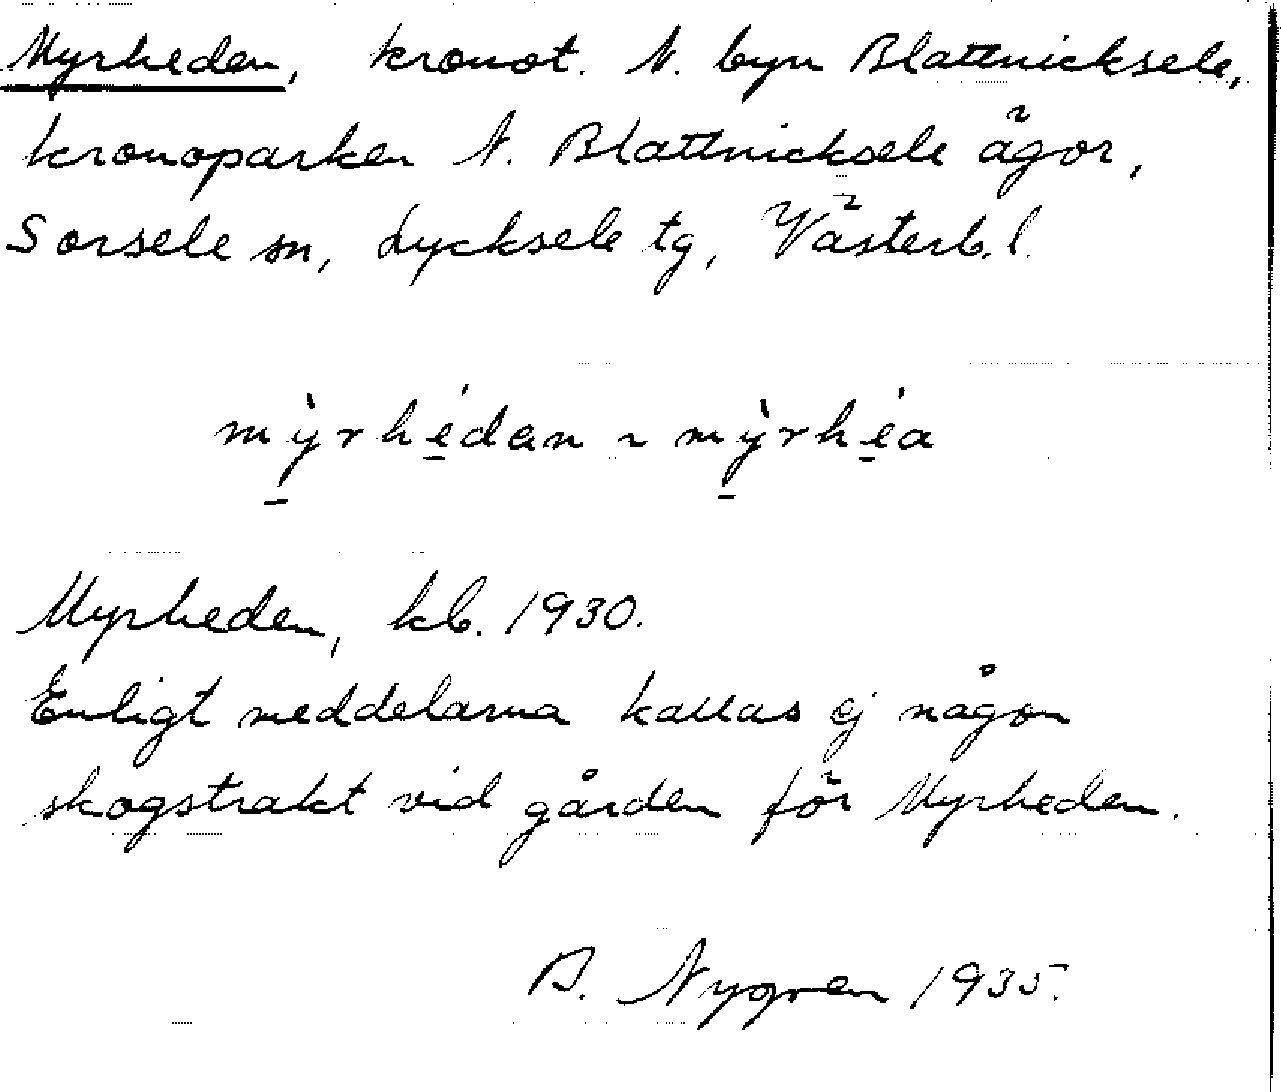 Myrheden, kronot. N. byn Blattnicksele,
kronoparken N. Blattnicksele ägor,
Sorsele sn, Lycksele tg, Västerb. l.
mỳrhédan ~ mỳrhéa
Myrheden, kb. 1930.
Enligt meddelarna kallas ej någon
skogstrakt vid gården för Myrheden.
B. Nygren 1935.